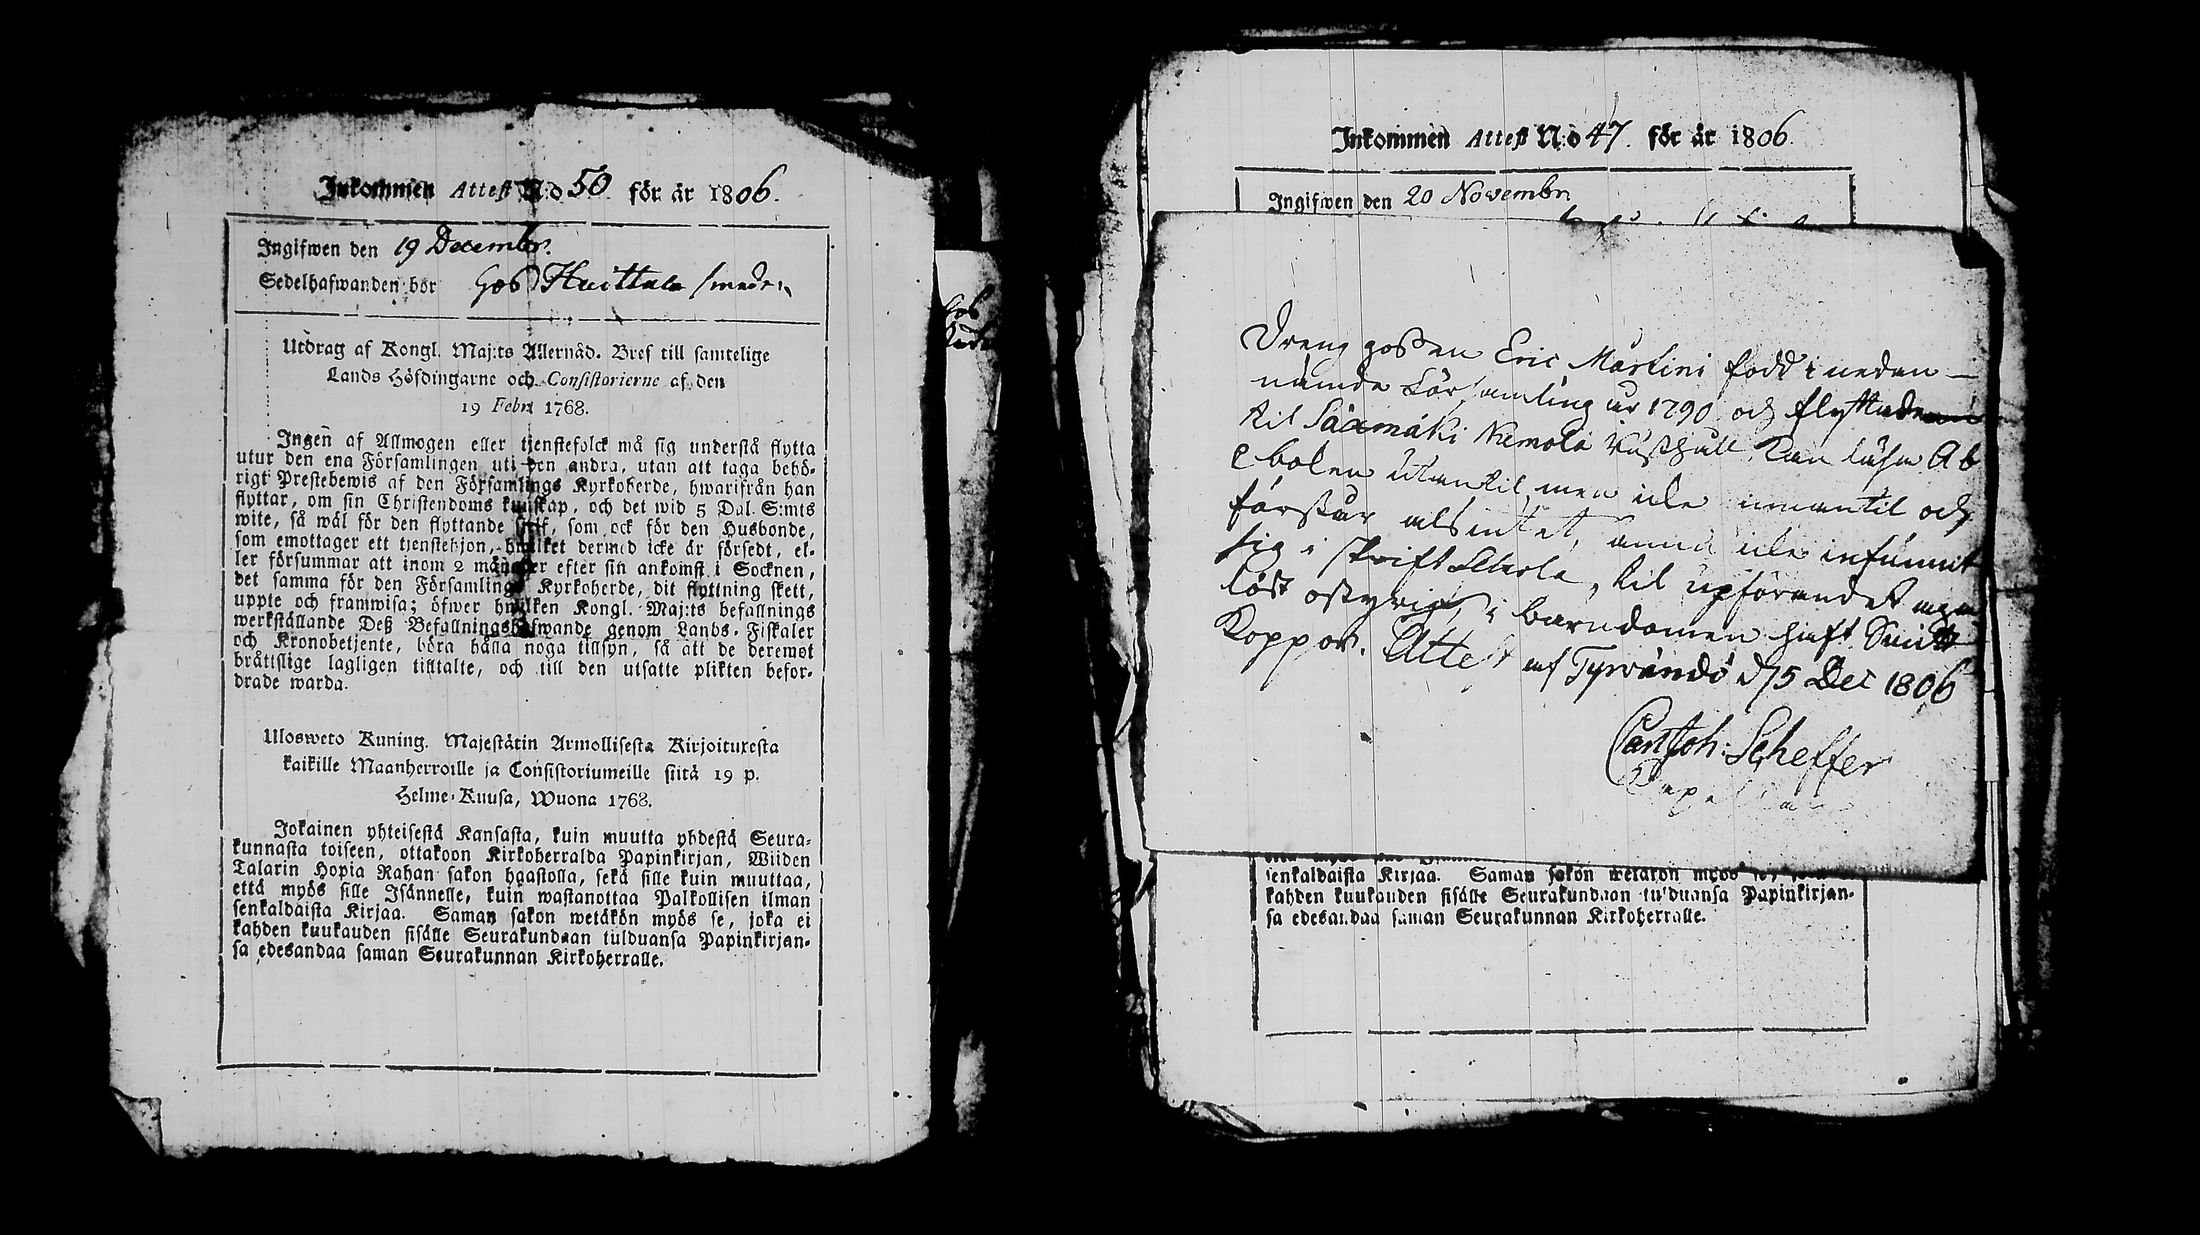 Inkommen Attest N:o 50. för år 1806.
Ingifwen den 19 Decembr.
Sedelhafwanden bor hos Huittula smeden
Utdrag af Kongl. Maj:ts Allernåd. Bref till samtelige
Lands Höfdingarne och Consistorierne af den
19 Febr. 1768.
Ingen af Allmogen eller tjenstefolck må sig understå flytta
utur den ena Församlingen uti den andra, utan att taga behö-
rigt Prestebewis af den Församlings Kyrkoherde, hwarifrån han
flyttar, om sin Christendoms kunskap, och det wid 5 Dal. S:mts
wite, så wäl för den flyttande sjelf, som ock för den Husbonde,
som emottager ett tjenstehjon, hwilket dermed icke är försedt, el-
ler försummar att inom 2 månader efter sin ankomst i Socknen,
det samma för den Församlings Kyrkoherde, dit flyttning skett,
uppte och framwisa; öfwer hwilken Kongl. Maj:ts befallnings
werkställande Deß Befallningshafwande genom Lands-Fiskaler
och Kronobetjente, böra hålla noga tillsyn, så att de deremot
bråttslige lagligen tilltalte, och till den utsatte plikten befor-
drade warda.
Ulosweto Kuning. Majestätin Armollisesta Kirjoituxesta
kaikille Maanherroille ja Consistoriumeille siitä 19 p.
Helme-Kuusa, Wuona 1768.
Jokainen yhteisestä Kansasta, kuin muutta yhdestä Seura-
kunnasta toiseen, ottakoon Kirkoherralda Papinkirjan, Wiiden
Talarin Hopia Rahan sakon haastolla, sekä sille kuin muuttaa,
että myös sille Isännelle, kuin wastanottaa Palkollisen ilman
senkaldaista Kirjaa. Saman sakon wetäkön myös se, joka ei
kahden kuukauden sisälle Seurakundaan tulduansa Papinkirjan-
sa edesandaa saman Seurakunnan Kirkoherralle.
Inkommen Attest N:o 47. för år 1806.
Ingifwen den 20 Novembr.
Dreng goßen Eric Martini född i nedan-
nämde Församling år 1790 och flyttade
til Sääxmäki Rusthåll, kan läsa Ab
c boken utantil, men icke innantil och
förstår alsintet, ännu icke infunnit
sig i Skriftschola, til upförandet
löst ostyrig, i barndomen haft
Koppor. Attest af Tyrvändö d 15 Dec 1806
Carl Joh: Scheffer
Capellan
senkaldaista Kirjaa. Saman sakon wetäkön myös
kahden kuukauden sisälle Seurakundaan tulduansa Papinkirjan-
sa edesandaa saman Seurakunnan Kirkoherralle.